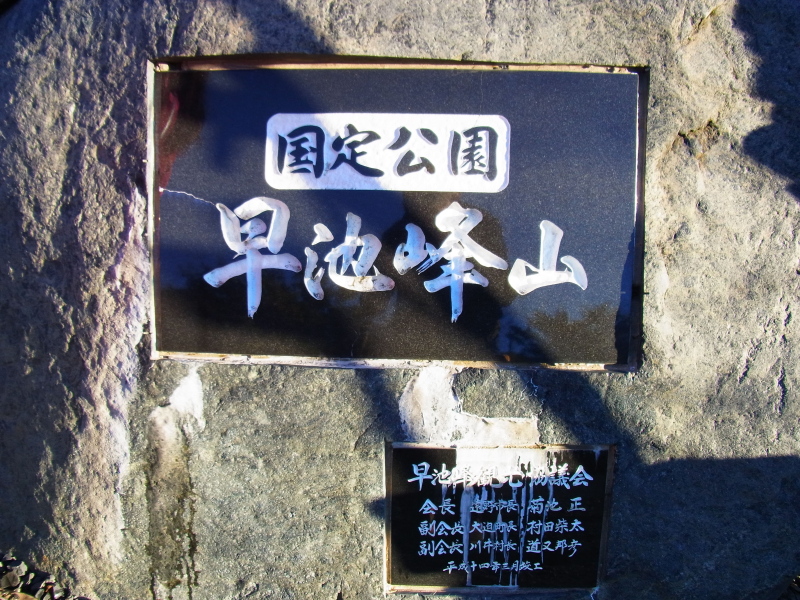 国定公園
早池峰山
早池峰観光協議会
会長 遠野市長 菊池 正
副会長 大迫町長 村田柴太
副会長 川井村長 道又邦彦
平成十四年三月竣工